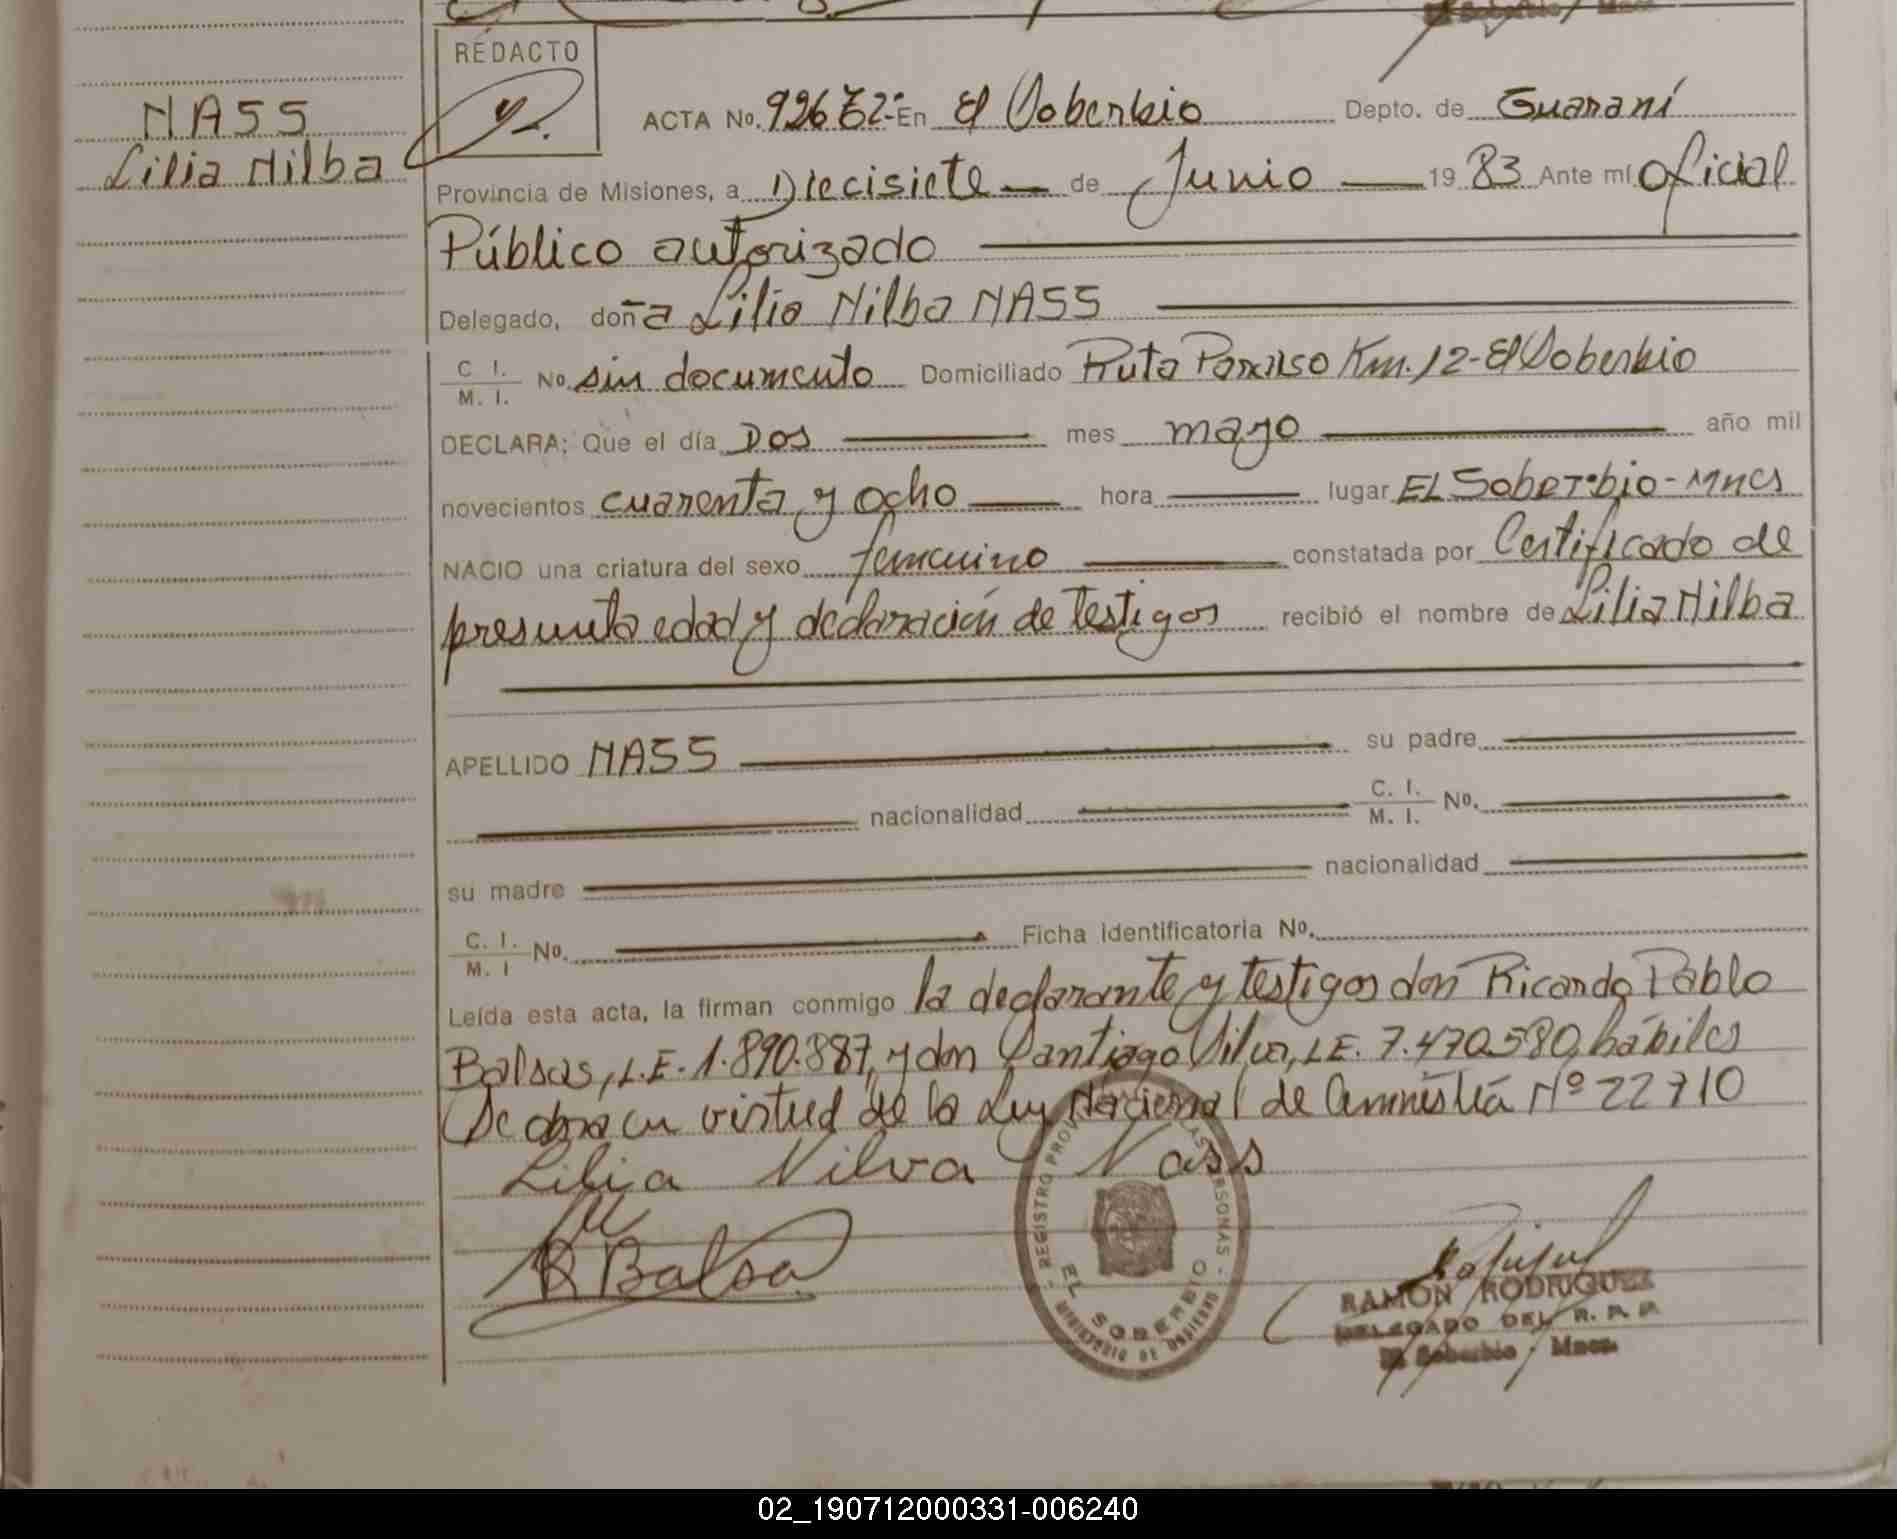 REDACTO
NASS
Lilia Nilba
ACTA No. 926 T2- En El Soberbio Depto. de Guaraní
Provincia de Misiones, a Diecisiete de Junio 19 83 Ante mí Oficial
Público autorizado
Delegado, doña Lilia Nilba NASS
C. I.
M. I. No. sin documento Domiciliado Ruta Paraiso Km. 12- El Soberbio
DECLARA: Que el día Dos mes mayo año mil
novecientos cuarenta y ocho hora lugar EL Soberbio - Mnes
NACIO una criatura del sexo femenino constatada por Certificado de
presunta edad y declaración de Testigos recibió el nombre de Lilia Nilba
APELLIDO NASS su padre
nacionalidad C. I.
M. I. No.
su madre nacionalidad
C. I.
M. I No. Ficha identificatoria No.
Leída esta acta, la firman conmigo la declarante y testigos don Ricardo Pablo
Balsas, L.E. 1.890.887, y don Santiago L.E. 7.470.580, hábiles
Se obra en virtud de la Ley Nacional de Amnistía Nº 22710
Lilia Nilva Nass
R Balsa
REGISTRO PROV. DE LAS PERSONAS
EL SOBERBIO
MINISTERIO DE GOBIERNO
RAMON RODRIGUEZ
DELEGADO DEL R. P. P.
El Soberbio - Mnes.
02_190712000331-006240